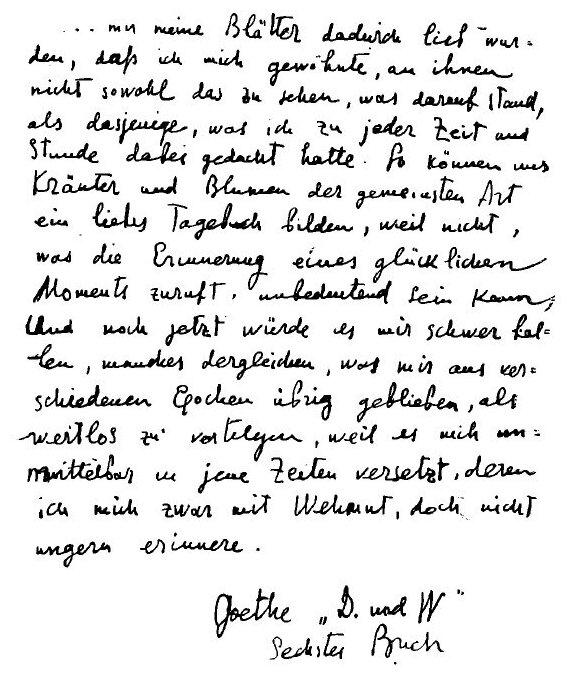 ... mir meine Blätter dadurch lieb wur=
den, daß ich mich gewöhnte, an ihnen
nicht sowohl das zu sehen, was darauf stand,
als dasjenige, was ich zu jeder Zeit und
Stunde dabei gedacht hatte. So können uns
Kräuter und Blumen der gemeinsten Art
ein liebes Tagebuch bilden, weil nicht,
was die Erinnerung eines glücklichen
Moments zuruft, unbedeutend sein kann;
Und noch jetzt würde es mir schwer fal=
len, manches dergleichen, was mir aus ver=
schiedenen Epochen übrig geblieben, als
wertlos zu vertilgen, weil es mich un=
mittelbar in jene Zeiten versetzt, deren
ich mich zwar mit Wehmut, doch nicht
ungern erinnere.
Goethe „D. und W"
Sechstes Buch